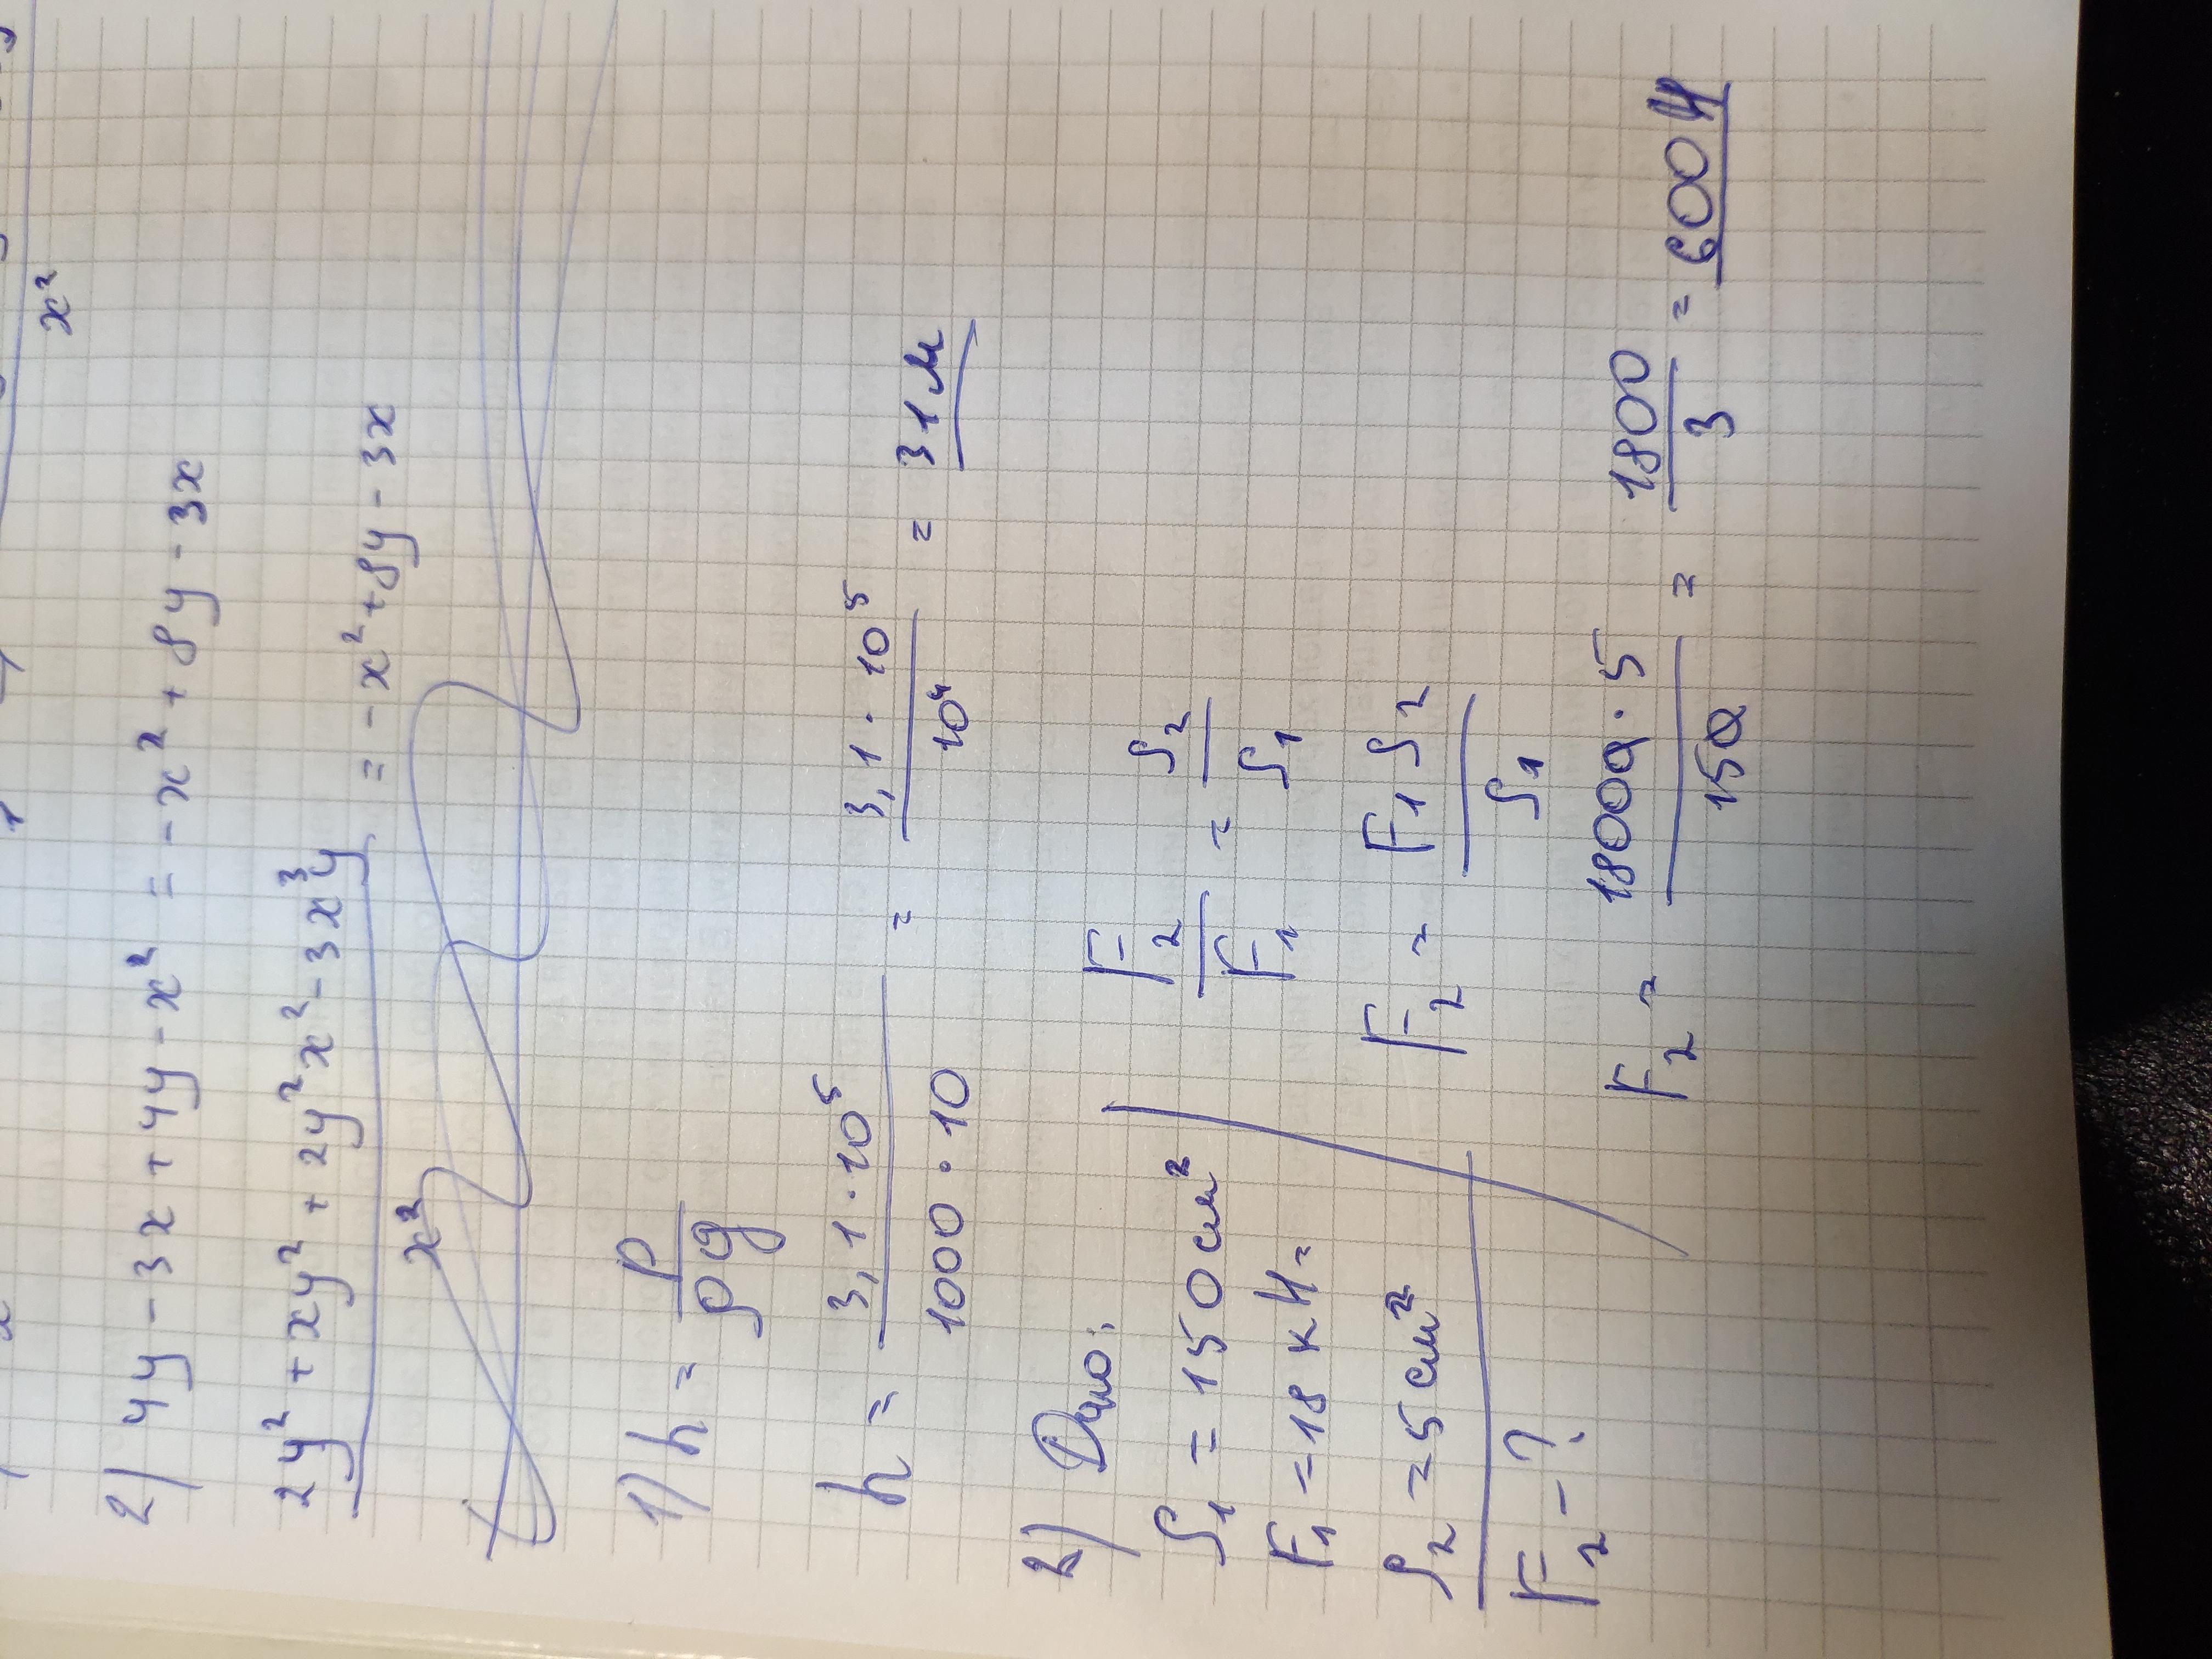 x²
2) 4y - 3x + 4y - x² = - x² + 8y - 3x
2y² + xy² + 2y²x² - 3x³y / x² = - x² + 8y - 3x
1) h = p / ρg
h = 3,1 · 10⁵ / 1000 · 10 = 3,1 · 10⁵ / 10⁴ = 31 м
2) Дано:
S₁ = 150 см²
F₁ = 18 кН =
S₂ = 5 см²
F₂ - ?
F₂ / F₁ = S₂ / S₁
F₂ = F₁ S₂ / S₁
F₂ = 18000 · 5 / 150 = 1800 / 3 = 600 Н